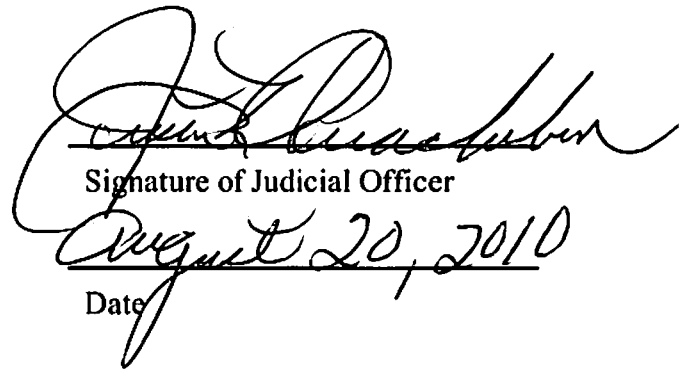 Signature of Judicial Officer
August 20, 2010
Date